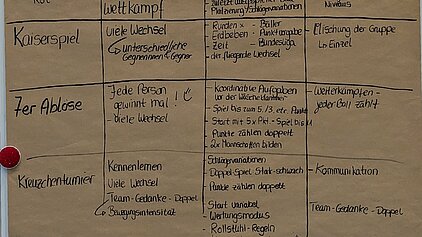 Wettkampf
Platzierung/Schlagvariationen
Niveaus
Kaiserspiel
viele Wechsel
↳ unterschiedliche
Gegnerinnen & Gegner
Runden x - Bälle
Erdbeben - Punktvorgabe
- Zeit - Bundesliga
- der fliegende Wechsel
Mischung der Gruppe
↳ Einzel
7er Ablöse
Jede Person
gewinnt mal!
- viele Wechsel
Koordinative Aufgaben
- Spiel bis zum 5./3. etc. Punkte
- Start mit 5x Pkt - Spiel bis 11
- Punkte zählen doppelt
- 2x Mannschaften bilden
- Weiterkämpfen -
jeder Ball zählt
Kreuzchenturnier
Kennenlernen
Viele Wechsel
Team-Gedanke - Doppel
↳ Bewegungsintensität
Schlagvariationen
Doppel-Spiel Stark-schwach
Punkte zählen doppelt
Start variabel
- Wertungsmodus
- Rollstuhl-Regeln
- Kommunikation
Team-Gedanke - Doppel